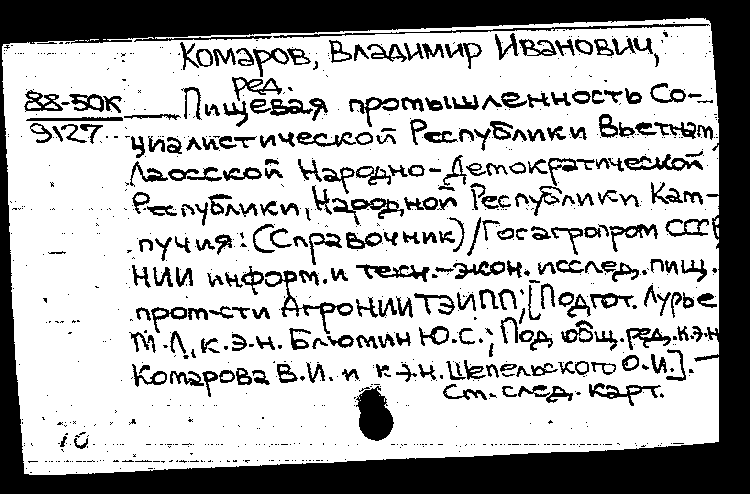 Комаров, Владимир Иванович,
ред.
88-50к
9127
Пищевая промышленность Со-
циалистической Республики Вьетнам
Лаосской Народно-Демократической
Республики, Народной Республики Кам-
пучия: (Справочник)/Госагропром СССР
НИИ информ. и техн.-экон. исслед. пищ.
пром-сти АгроНИИТЭИПП; [Подгот. Лурье
М.Л., к.э.н. Блюмин Ю.С.; Под общ. ред. к.э.н
Комарова В.И. и к.э.н. Шепельского О.И.]. —
См. след. карт.
10